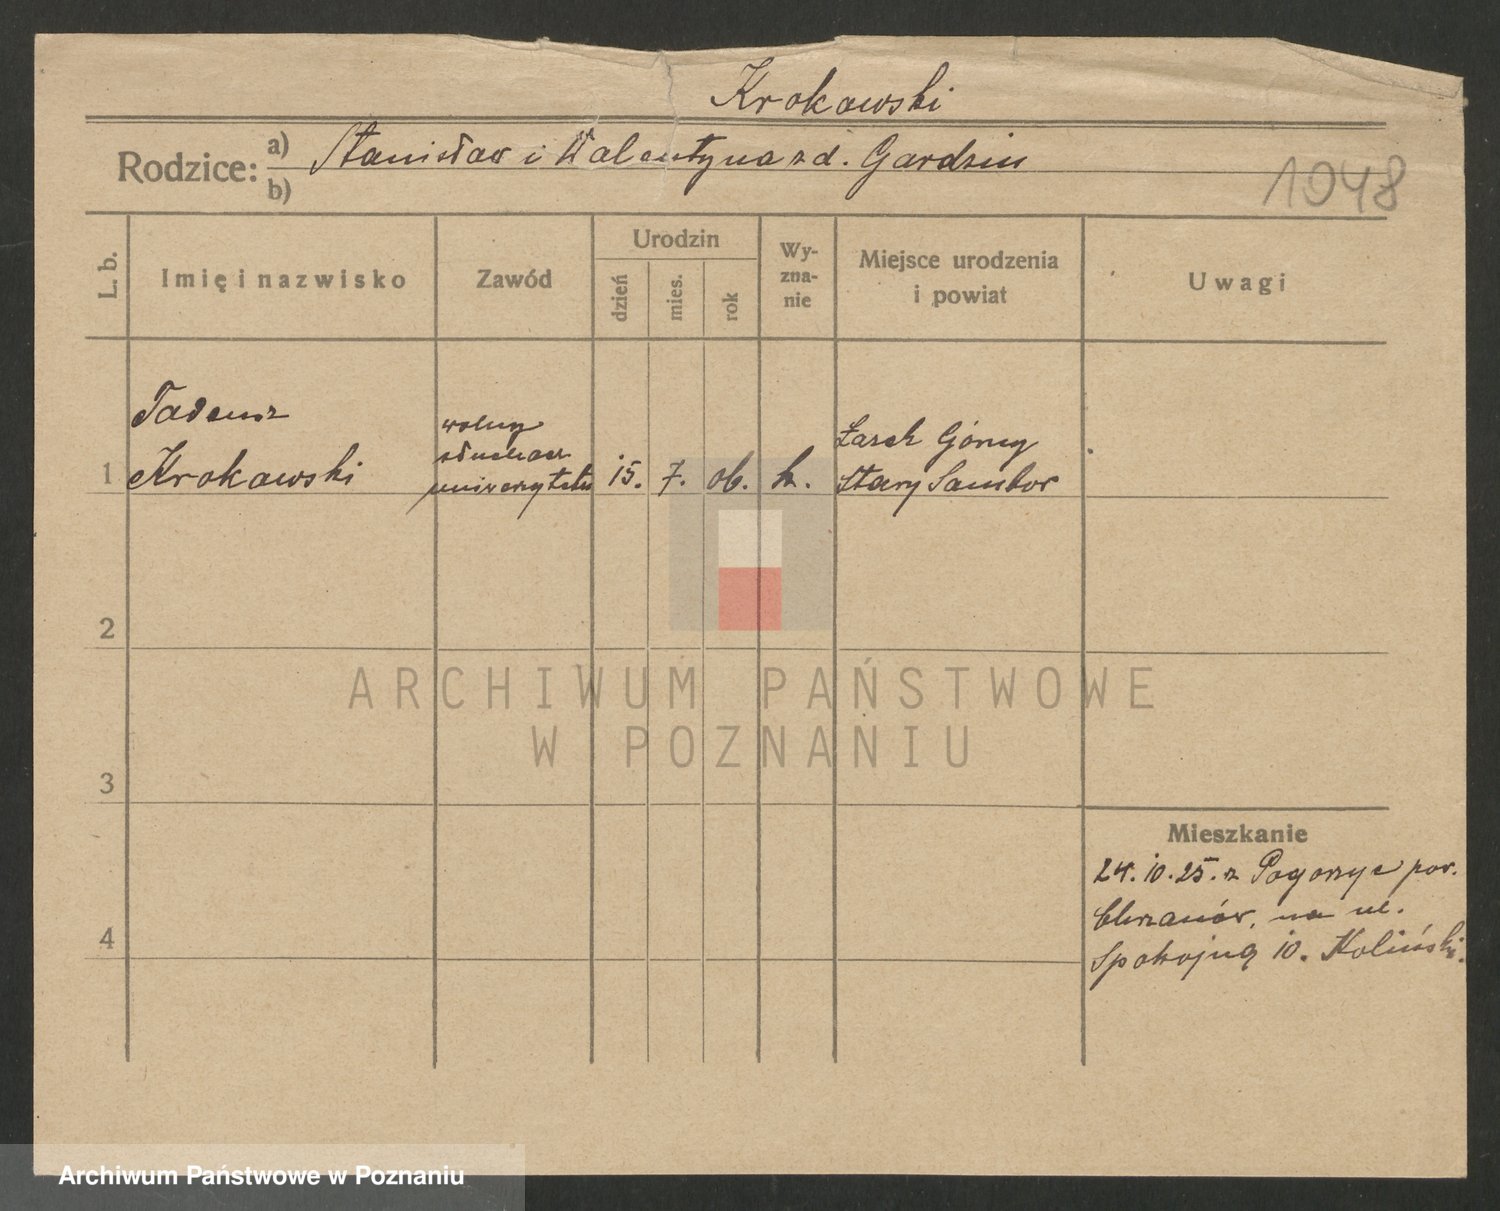 Krokowski
Rodzice: a) Stanisław i Walentyna z d. Gardziu
b)
1048
L. b.
Imię i nazwisko
Zawód
Urodzin
dzień
mies.
rok
Wy-
zna-
nie
Miejsce urodzenia
i powiat
Uwagi
Tadeusz
wolny
słuchacz
Łazek Górny
1 Krokowski uniwersytetu 15. 7. 06. k. Stary Sambor
2
ARCHIWUM PAŃSTWOWE
W POZNANIU
3
Mieszkanie
24. 10. 25. z Pogorzyc pow.
Chrzanów, na ul.
4
Spokojną 10. Koliński.
Archiwum Państwowe w Poznaniu